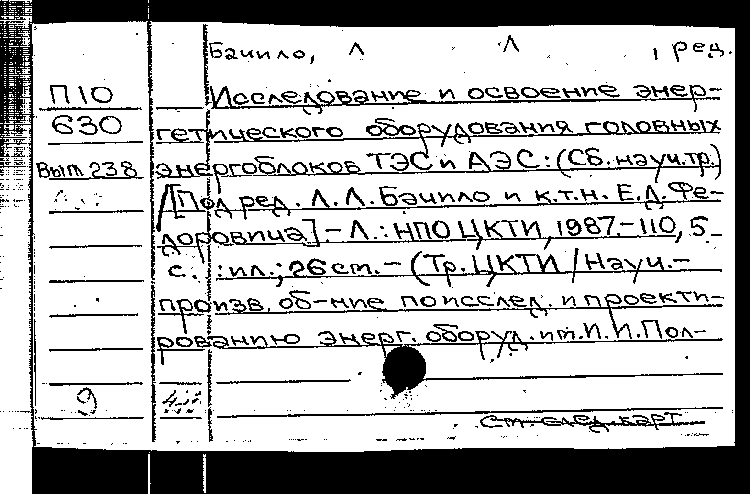 Бачило, Л Л , ред.
П10 Исследование и освоение энер-
630 гетического оборудования головных
Вып 238 энергоблоков ТЭС и АЭС: (Сб. науч. тр.)
/[Под ред. Л. Л. Бачило и к.т.н. Е. Д. Фе-
доровича]. - Л.: НПО ЦКТИ, 1987. - 110, 5
с. : ил.; 26 cm. - (Тр. ЦКТИ / Науч.-
произв. об-ние по исслед. и проекти-
рованию энерг. оборуд. им. И. И. Пол-
9
См. след. карт